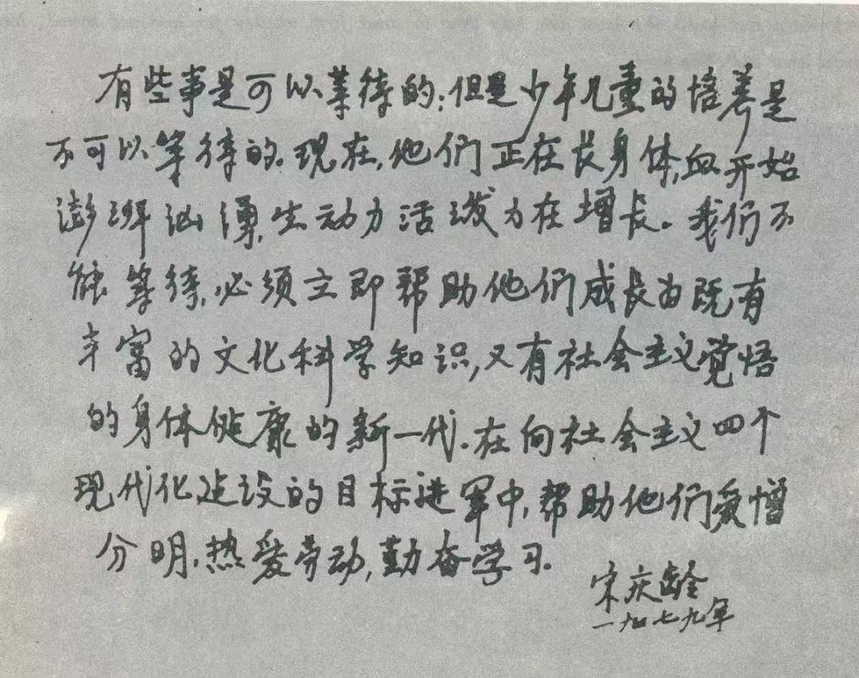 有些事是可以等待的;但是少年儿童的培养是
不可以等待的。现在,他们正在长身体,血开始
澎湃汹涌,生动力活泼力在增长。我们不
能等待,必须立即帮助他们成长为既有
丰富的文化科学知识,又有社会主义觉悟
的身体健康的新一代。在向社会主义四个
现代化建设的目标进军中,帮助他们爱憎
分明,热爱劳动,勤奋学习。
宋庆龄
一九七九年